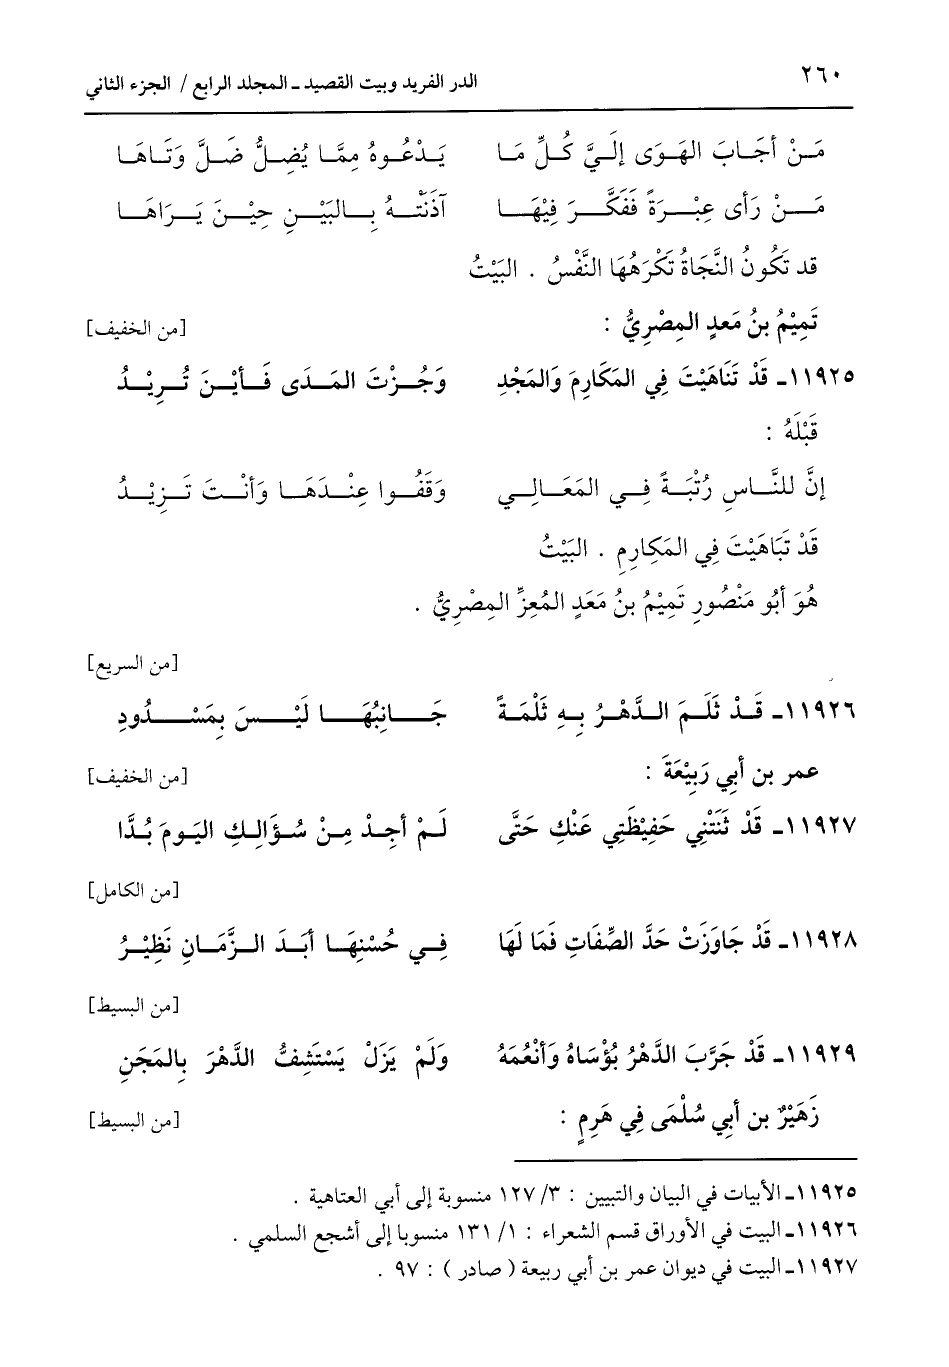 ٢٦٠ الدر الفريد وبيت القصيد ـ المجلد الرابع / الجزء الثاني
مَنْ أجَابَ الهَوَى إلَيَّ كُلِّ مَا يَدْعُوهُ مِمَّا يُضِلُّ ضَلَّ وَتَاهَا
مَنْ رَأى عِبْرَةً فَفَكَّرَ فِيْهَا آذَنَتْهُ بِالبَيْنِ حِيْنَ يَرَاهَا
قد تَكُونُ النَّجَاةُ تَكْرَهُهَا النَّفْسُ . البَيْتُ
تَمِيْمُ بنُ مَعدٍ المِصْرِيُّ : [من الخفيف]
١١٩٢٥ـ قَدْ تَنَاهَيْتَ فِي المَكَارِمَ وَالمَجْدِ وَجُزْتَ المَدَى فَأيْنَ تُرِيْدُ
قَبْلَهُ :
إنَّ للنَّاسِ رُتْبَةً فِي المَعَالِي وَقَفُوا عِنْدَهَا وَأنْتَ تَزِيْدُ
قَدْ تَبَاهَيْتَ فِي المَكَارِمِ . البَيْتُ
هُوَ أبُو مَنْصُورِ تَمِيْمُ بنُ مَعَدٍ المُعِزِّ المِصْرِيُّ .
[من السريع]
١١٩٢٦ـ قَدْ ثَلَمَ الدَّهْرُ بِهِ ثَلْمَةً جَانِبُهَا لَيْسَ بِمَسْدُودِ
عمر بن أبي رَبِيْعَةَ : [من الخفيف]
١١٩٢٧ـ قَدْ ثَنَتْنِي حَفِيْظَتِي عَنْكِ حَتَّى لَمْ أجِدْ مِنْ سُؤَالِكِ اليَومَ بُدَّا
[من الكامل]
١١٩٢٨ـ قَدْ جَاوَزَتْ حَدَّ الصِّفَاتِ فَمَا لَهَا فِي حُسْنِهَا أبَدَ الزَّمَانِ نَظِيْرُ
[من البسيط]
١١٩٢٩ـ قَدْ جَرَّبَ الدَّهْرُ بُؤْسَاهُ وَأنْعُمَهُ وَلَمْ يَزَلْ يَسْتَشِفُّ الدَّهْرَ بِالمَجَنِ
زَهَيْرٌ بن أبِي سُلْمَى فِي هَرِمٍ : [من البسيط]
١١٩٢٥ـ الأبيات في البيان والتبيين : ٣/ ١٢٧ منسوبة إلى أبي العتاهية .
١١٩٢٦ـ البيت في الأوراق قسم الشعراء : ١/ ١٣١ منسوبا إلى أشجع السلمي .
١١٩٢٧ـ البيت في ديوان عمر بن أبي ربيعة ( صادر ) : ٩٧ .